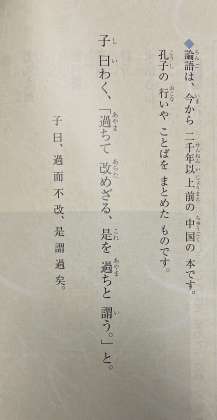 ◆論語は、今から 二千年以上前の 中国の 本です。
孔子の 行いや ことばを まとめた ものです。
子 曰わく、「過ちて 改めざる、是を 過ちと 謂う。」と。
子曰、過而不改、是謂過矣。